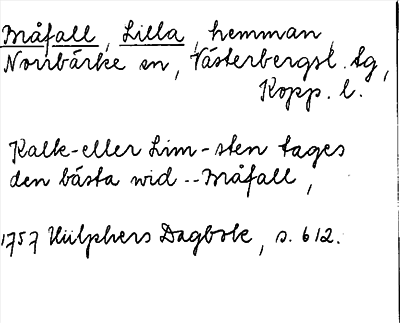 Bråfall, Lilla, hemman,
Norrbärke sn, Västerbergsl. tg,
Kopp. l.
Kalk-eller Lim-sten tages
den bästa wid -- Bråfall,
1757 Hülphers Dagbok, s. 612.